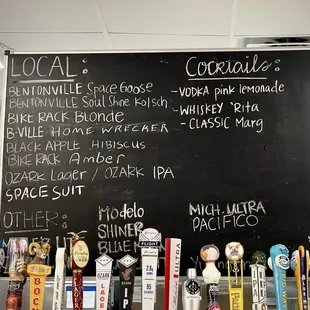 LOCAL:
BENTONVILLE Space Goose
BENTONVILLE Soul Shine Kolsch
BIKE RACK BLONDE
B-VILLE HOME WRECKER
BLACK APPLE HIBISCUS
BIKE RACK AMBER
OZARK LAGER / OZARK IPA
SPACE SUIT
OTHER:
Modelo
SHINER
BLUE
MICH. ULTRA
PACIFICO
Cocktails:
-VODKA pink lemonade
-WHISKEY 'Rita
-CLASSIC Marg
FLIGHT
ULTRA